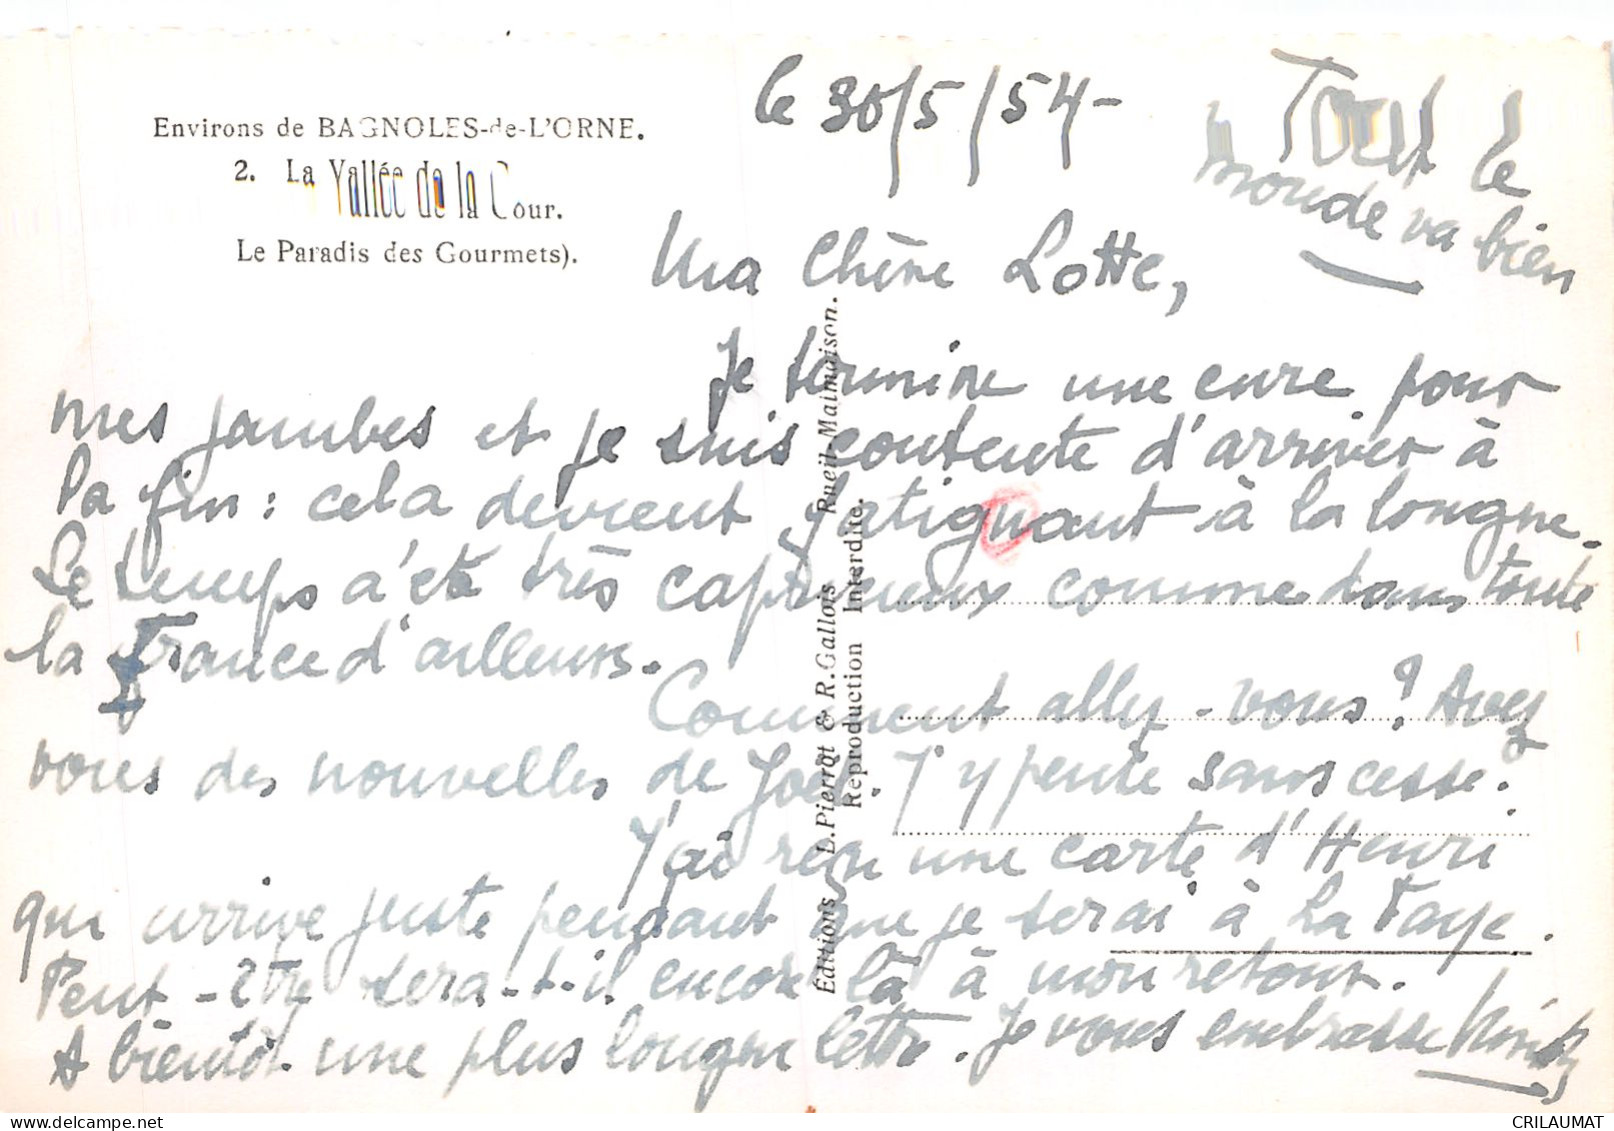 Environs de BAGNOLES-de-L'ORNE.
2. La Vallée de la Cour.
Le Paradis des Gourmets).
le 30/5/54-
Tout le
monde va bien
Ma Chère Lotte,
Je termine une cure pour
mes jambes et je suis contente d'arriver à
la fin : cela devient fatiguant à la longue.
Le temps a été très capricieux comme dans toute
la France d'ailleurs.
Comment allez-vous ? Avez
vous des nouvelles de Joël. J'y pense sans cesse.
J'ai reçu une carte d'Henri
qui arrive juste pendant que je serai à La Faye.
Peut-être sera-t-il encore là à mon retour.
A bientôt une plus longue lettre. Je vous embrasse
Éditions L. Pierrot & R. Gallois Rueil-Malmaison.
Reproduction Interdite.
CRILAUMAT